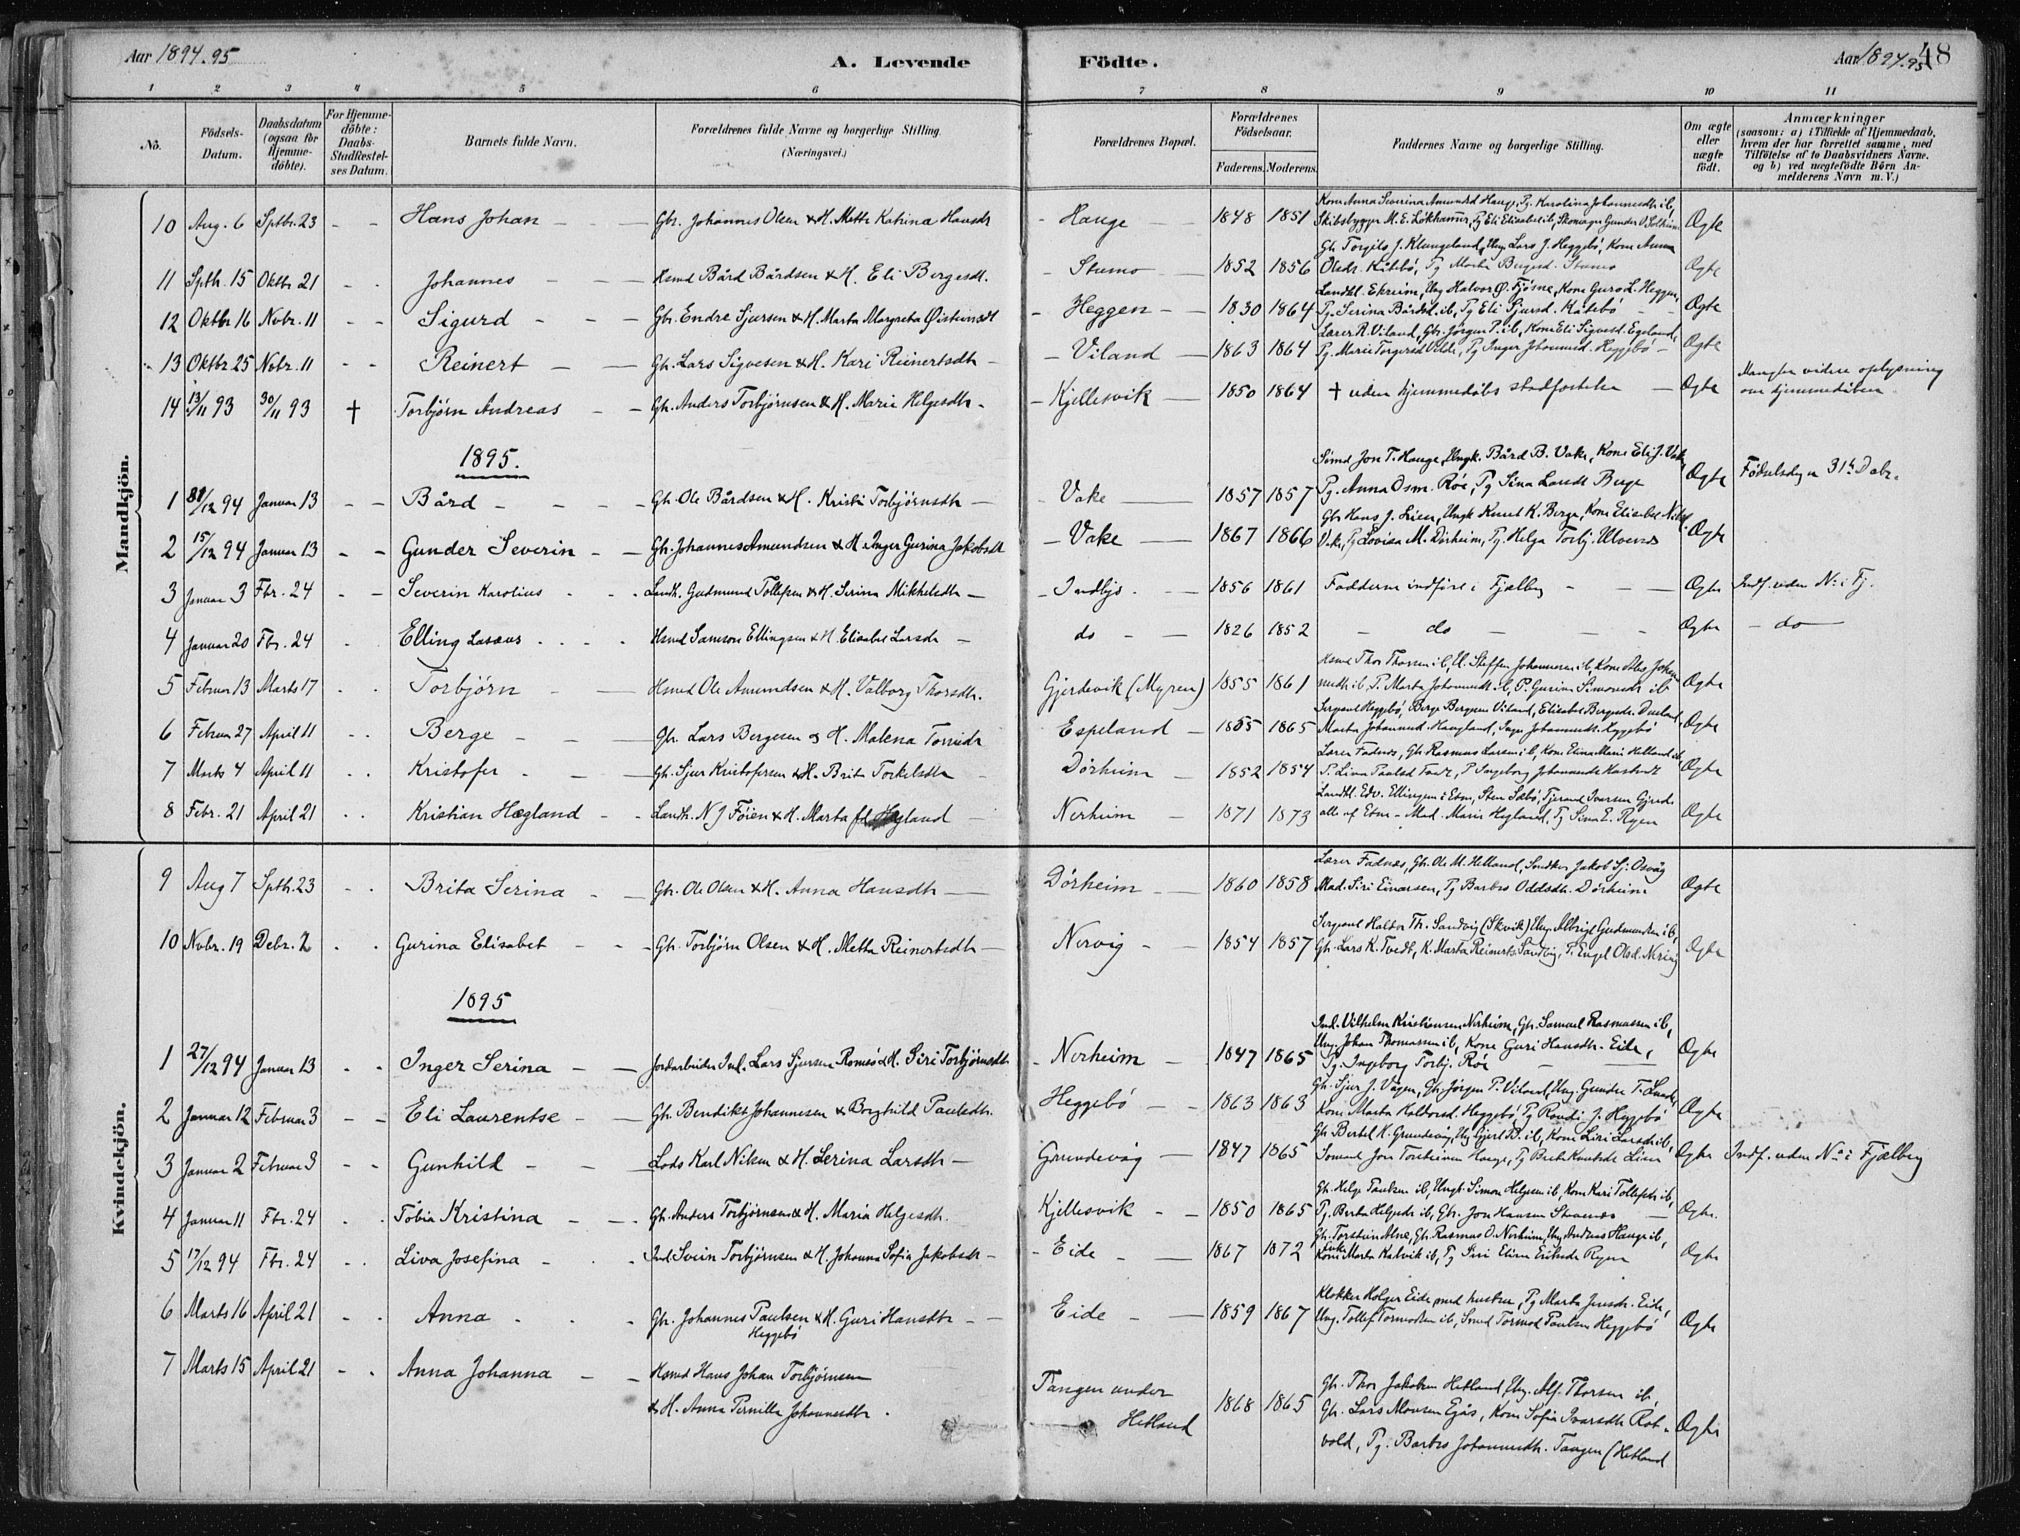 Aar 1894.95
A. Levende
Födte.
Aar 1894.95
48
1 2 3 4 5 6 7 8 9 10 11
Nö.
Födsels-Datum.
Daabsdatum (ogsaa for Hjemmedöbte).
For Hjemmedöbte: Daabs-Stadfæstelses Datum.
Barnets fulde Navn.
Forældrenes fulde Navne og borgerlige Stilling. (Næringsvei.)
Forældrenes Bopæl.
Forældrenes Födselsaar.
Faderens. Moderens.
Faddernes Navne og borgerlige Stilling.
Om ægte eller uægte födt.
Anmærkninger
(saasom: a) i Tilfælde af Hjemmedaab, hvem der har forrettet samme, med Tilföielse af to Daabsvidners Navne. og b) ved uægtefödte Börn Anmelderens Navn m. V.)
Mandkjön.
10 Aug. 6 Sptbr. 23 - - Hans Johan - - Gbr. Johannes Olsen & H. Mette Katrina Hansdt - Hauge - 1848 1851 Kone Anna Severina Amundsd Hauge, Pg. Karolina Johannesdt ib, Skibsbygger M. E. Løkhammer, Pg Eli Elisabet ib, Ægte
11 Sptb. 15 Oktbr 21 - - Johannes - - Hsmd Bård Bårdsen & H. Eli Bergesdt. - Stumo - 1852 1856 Gb Torgils J. Klungeland, Ung Lars J. Heggebö, Kone Anna Olsdt. Kåtebö, Pg Marta Bergesd. Stumo Ægte
12 Oktbr 16 Nvbr. 11 - - Sigurd - - Gbr. Endre Sjursen & H. Marta Margreta Øisteinsdt - Heggen - 1830 1864 Landhl. Ekreim, Ung Halvor Ø. Fjösne, Kone Guro L. Heggen, Pg. Serina Bårdsd. ib, Pg Eli Sjursd. Kåtebö Ægte
13 Oktbr 25 Nvbr. 11 - - Reinert - - Gbr. Lars Sigvesen & H. Kari Reinertsdtr - Viland - 1863 1864 Lærer R. Viland, Gbr. Jörgen P. ib, Kone Eli Sigvesd. Egeland, Pg. Marie Torgersd Vilde, Pg Inger Johannesd. Heggebö - Ægte
14 13/11 93 30/11 93 † Torbjørn Andreas - - Gbr. Anders Torbjørnsen & H. Marie Helgesdtr - Kjellesvik - 1850 1864 † uden hjemmedåbs stadfæstelse - Ægte Mangler videre oplysning om hjemmedåben
1895.
1 31/12 94 Januar 13 - - Bård - - Gbr. Ole Bårdsen & H. Kristi Torbjørnsdtr - Vake - 1857 1857 Smd Jon T. Hauge, Ungk. Bård B. Vake, Kone Eli J. Vake, Pg. Anna Osm. Röe, Pg Sina Larsdt Berge Ægte Fødselsdagen 31te Dcbr.
2 15/12 94 Januar 13 - - Gunder Severin - - Gbr. Johannes Amundsen & H. Inger Gurina Jakobsdt - Vake - 1867 1866 Gbr Hans J. Lien, Ungk Knut K. Berge, Kone Elisabet Vake, Pg Lovisa M. Dörheim, Pg. Helga Torbj. Ulvenes Ægte
3 Januar 3 Fbr. 24 - - Severin Karolius - - Landh. Gudmund Tollefsen & H. Serina Mikkelsdtr - Indbjo - 1856 1861 Fadderne indføre i Fjælberg - - Ægte Indf. uden No i Fj.
4 Januar 20 Fbr. 24 - Elling Lasæus - - Hsmd Samson Ellingsen & H. Elisabet Larsdtr - do - 1826 1852 - do - Ægte - do -
5 Februar 13 Marts 17 - Torbjörn - Hsmd Ole Amundsen & H. Valborg Thorsdtr. Gjerdevik (Myren) 1855 1861 Hsmd Thor Thorsen ib, U. Steffen Johannesen ib, P. Marta Johannesdt ib, P. Gurina Simonsdt ib Ægte
6 Februar 27 April 11 - Berge - - Gbr. Lars Bergesen og H. Malena Tormodsdt Espeland - 1855 1865 Sergeant Heggebö, Berge Bergesen Viland, Elisabet Bergesdt. Marta Johannesd. Haugland, Inger Johannesdt. Heggebö Ægte
7 Marts 4 April 11 - Kristofer - - Gbr. Sjur Kristofersen & H. Brita Torkelsdtr Dörheim - 1852 1854 Lærer Fadnes, Gbr Rasmus Larsen ib, Kone Elina Marie Helland ib, P. Lina Paulsd P Ingeborg Johannesdt Ægte
8 Febr. 21 April 21 - Kristian Hægland - - Landh. N J Föien & H. Marta f. Hægland Nerheim - 1871 1873 Landhl. Edv. Ellingsen i Etne, Sten Sæbö, Tjerand Iversen Gjerde alle af Etne - Mad. Marie Hægland, Pg Sina E. Ryen Ægte
Kvindekjön.
9 Aug 7 Sptb. 23 - Brita Serina - Gbr. Ole Olsen & H. Anna Hansdtr - Dörheim - 1860 1858 Lærer Fadnæs, Gbr. Ole M. Helland, Jakob Sj. Osvåg Mad. Siri Einarsen, Pg Barbro Oddsdt. Dörheim Ægte
10 Nvbr. 19 Debr. 2 - Gurina Elisabet - - Gbr. Torbjørn Olsen & H. Metta Reinertsdtr - Nervig - 1854 1857 Sergeant Halvor Th. Sandvig (Skvik) Ung. Albrigt Gudmundsen ib, Gbr. Lars K. Tvedt, K. Marta Reinerts. Sandvig, P. Engel Olsd. Nervig Ægte
1895
1 27/12 94 Januar 13 - Inger Serina - - Jordarbeider Ind. Lars Sjursen Romsö & H. Siri Torbjørnsdtr - Nerheim - 1847 1865 Ind. Vilhelm Kristiansen Nerheim, Gbr. Samuel Rasmussen ib, Ung. Johan Thomassen ib, Kone Guri Hansdtr. Eide, Pg. Ingeborg Torbj. Röe Ægte
2 Januar 12 Februar 3 - Eli Laurentse - Gbr. Bendikt Johannesen & Borghild Paulsdtr. Heggebö - 1863 1863 Gbr. Sjur J. Vågen, Gbr. Jörgen P. Viland, Ung. Gunder T. Kone Marta Halvorsd. Heggebö, Pg Randi J. Heggebö Ægte
3 Januar 2 Februar 3 - Gunhild - - Lods Karl Nilsen & H. Serina Larsdtr - Grundevåg - 1847 1865 Gbr Bertel K. Grundevåg, Ung Gjert B. ib, Kone Siri Larsdt ib, Jon Torbjörnsen Hauge, Pg Brita Knutsdt Lien Ægte Indf. uden No i Fjælberg
4 Januar 11 Fbr. 24 - Tobia Kristina - - Gbr. Anders Torbjørnsen & H. Maria Helgesdtr. Kjellesvik - 1850 1865 Gbr. Helge Paulsen ib, Ungk. Simon Helgesen ib, Kone Kari Tollefsdt ib, Pg. Berta Helgesdt ib, Gbr. Jon Hansen Ægte.
5 17/12 94 Fbr. 24 - Liva Josefina - Ind Svein Torbjørnsen & H. Johanna Sofia Jakobsdtr - Eide - 1867 1872 Gbr. Torstein Gbr. Rasmus O. Nerheim, Ung Andreas Hauge ib, Kone Marta Kalvik ib, Pg Siri Elina Eriksdt Ryen Ægte
6 Marts 16 April 21 - Anna - Gbr. Johannes Paulsen Heggebö & H. Guri Hansdtr - Eide - 1859 1867 Klokker Holger Eide med hustru, Pg Marta Jensdt. Eide, Ung. Tollef Tormodsen ib, Smed Tormod Paulsen Heggebö Ægte
7 Marts 15 April 21 - Anna Johanna - - Hsmd Hans Johan Torbjørnsen & H. Anna Pernilla Johannesdtr. Tangen under Hetland 1868 1865 Gbr. Thor Jakobsen Hetland, Ung. Alf Thorsen ib, Gbr. Lars Monsen Egås, Kone Sofia Ivarsdtr Rötvold, Pg. Barbro Johannesdtr. Tangen (Hetland Ægte